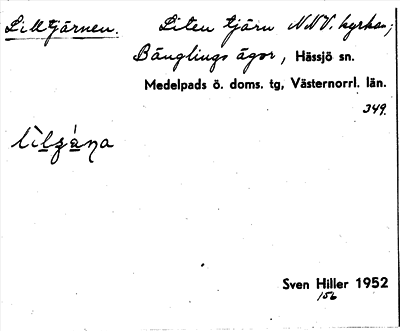 Lilltjärnen. Liten tjärn NNV. kyrkan;
Bänglings ägor, Hässjö sn.
Medelpads ö. doms. tg, Västernorrl. län.
349.
Sven Hiller 1952
156